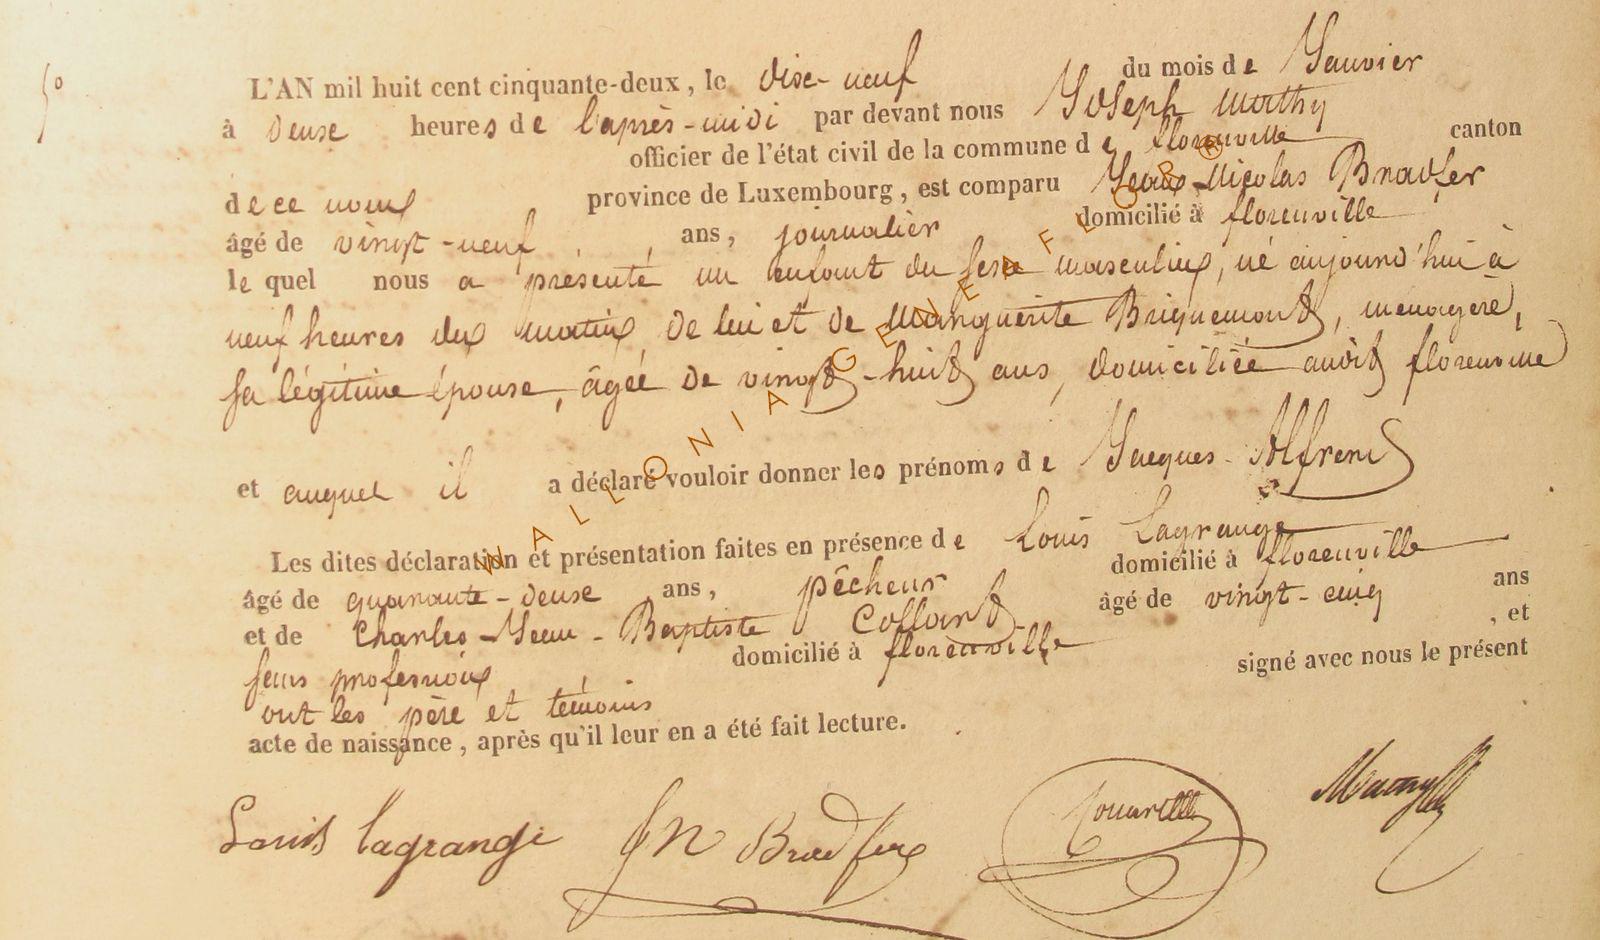 5°
L'AN mil huit cent cinquante-deux, le dixe-neuf du mois de Janvier
à deuxe heures de l'après-midi par devant nous Joseph Mathy
officier de l'état civil de la commune de florenville canton
de ce nom province de Luxembourg, est comparu Jean-Nicolas Bradfer
âgé de vingt-neuf ans, journalier domicilié à florenville
le quel nous a présenté un enfant du sexe masculin, né aujourd'hui à
neuf heures du matin de lui et de Marguerite Briquemont, ménagère,
sa légitime épouse, âgée de vingt-huit ans, domiciliée audit florenville
et auquel il a déclaré vouloir donner les prénoms de Jacques-Alfrend
Les dites déclaration et présentation faites en présence de Louis Lagrange
âgé de quarante-deuxe ans, pêcheur domicilié à florenville
et de Charles-Jean-Baptiste Collard âgé de vingt-cinq ans
sans profession domicilié à florenville, et
ont les père et témoins signé avec nous le présent
acte de naissance, après qu'il leur en a été fait lecture.
Louis Lagrange JN Bradfer
WALLONIA GENEAFLOR®